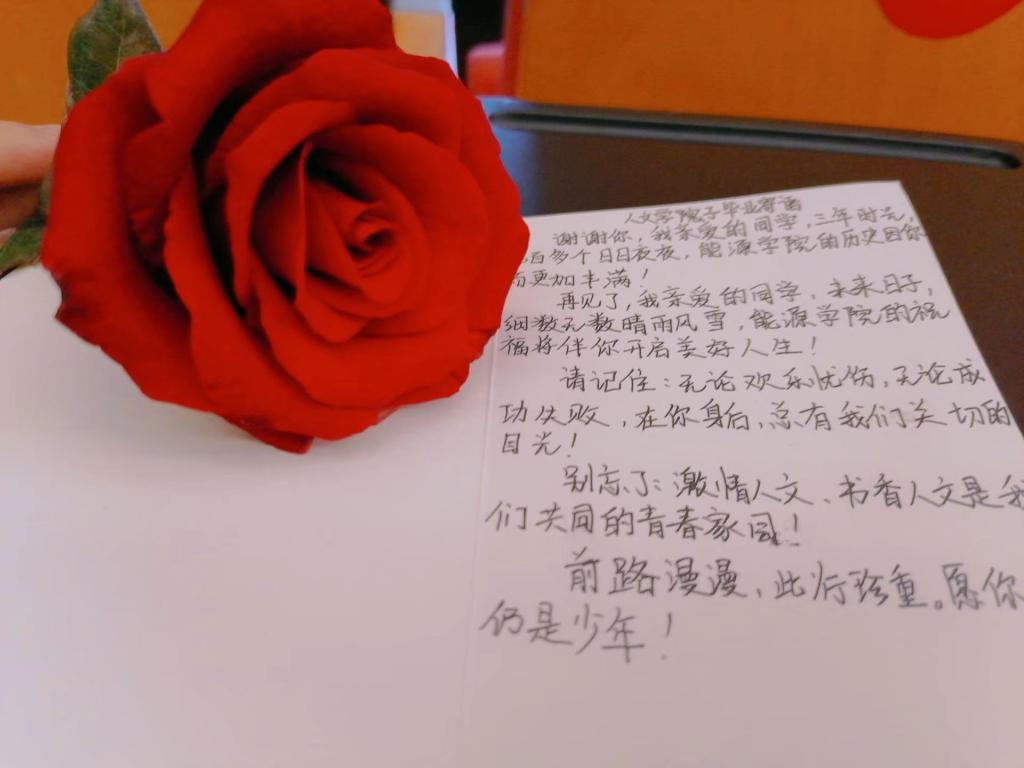 人文学院毕业寄语
谢谢你,我亲爱的同学,三年时光,
百多个日日夜夜,能源学院的历史因你
而更加丰满!
再见了,我亲爱的同学,未来日子,
细数无数晴雨风雪,能源学院的祝
福将伴你开启美好人生!
请记住:无论欢乐忧伤,无论成
功失败,在你身后,总有我们关切的
目光!
别忘了:激情人文、书香人文是我
们共同的青春家园!
前路漫漫,此行珍重。愿你
仍是少年!